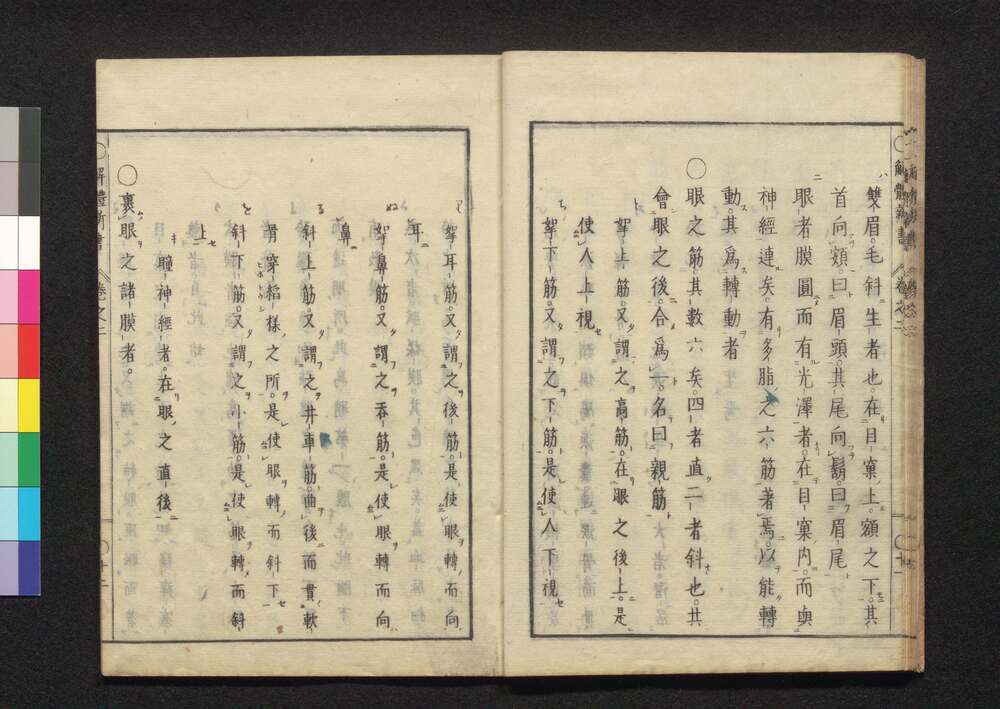 解體新書 卷之二
ハ 雙眉。毛斜生者也。在目窠上。額之下。其
首向頞。曰眉頭。其尾向鬚。曰眉尾
ニ 眼者膜圓而有光澤者。在目窠内。而與
神經連矣。有多脂。之六筋著焉。以能轉
動。其爲轉動者
〇眼之筋。其數六矣。四者直。二者斜也。共
會眼之後。合爲一。名曰親筋
ト 挈上筋。又謂之高筋。在眼之後上。是
使人上視
ち 挈下筋。又謂之下筋。是使人下視
挈耳筋。又謂之後筋。是使眼轉而向
耳
ぬ 挈鼻筋。又謂之吞筋。是使眼轉而向
鼻
る 斜上筋。又謂之井車筋。曲後而貫軟
骨穿稻樣之所。是使眼轉而斜下
を 斜下筋。又謂之小筋。是使眼轉而斜
上
瞳神經者。在眼之直後
〇裏眼之諸膜者。
解體新書 卷之二 〇十二